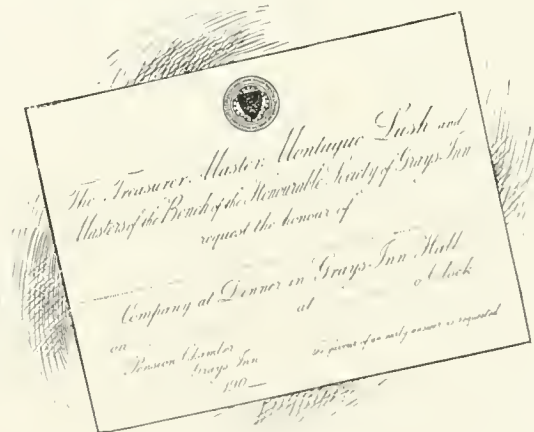 The Treasurer Master Montague Lush and
Masters of the Bench of the Honourable Society of Grays Inn
request the honour of
Company at Dinner in Grays Inn Hall
on at o'Clock
Pension Chamber
Grays Inn
190
of an early answer is requested